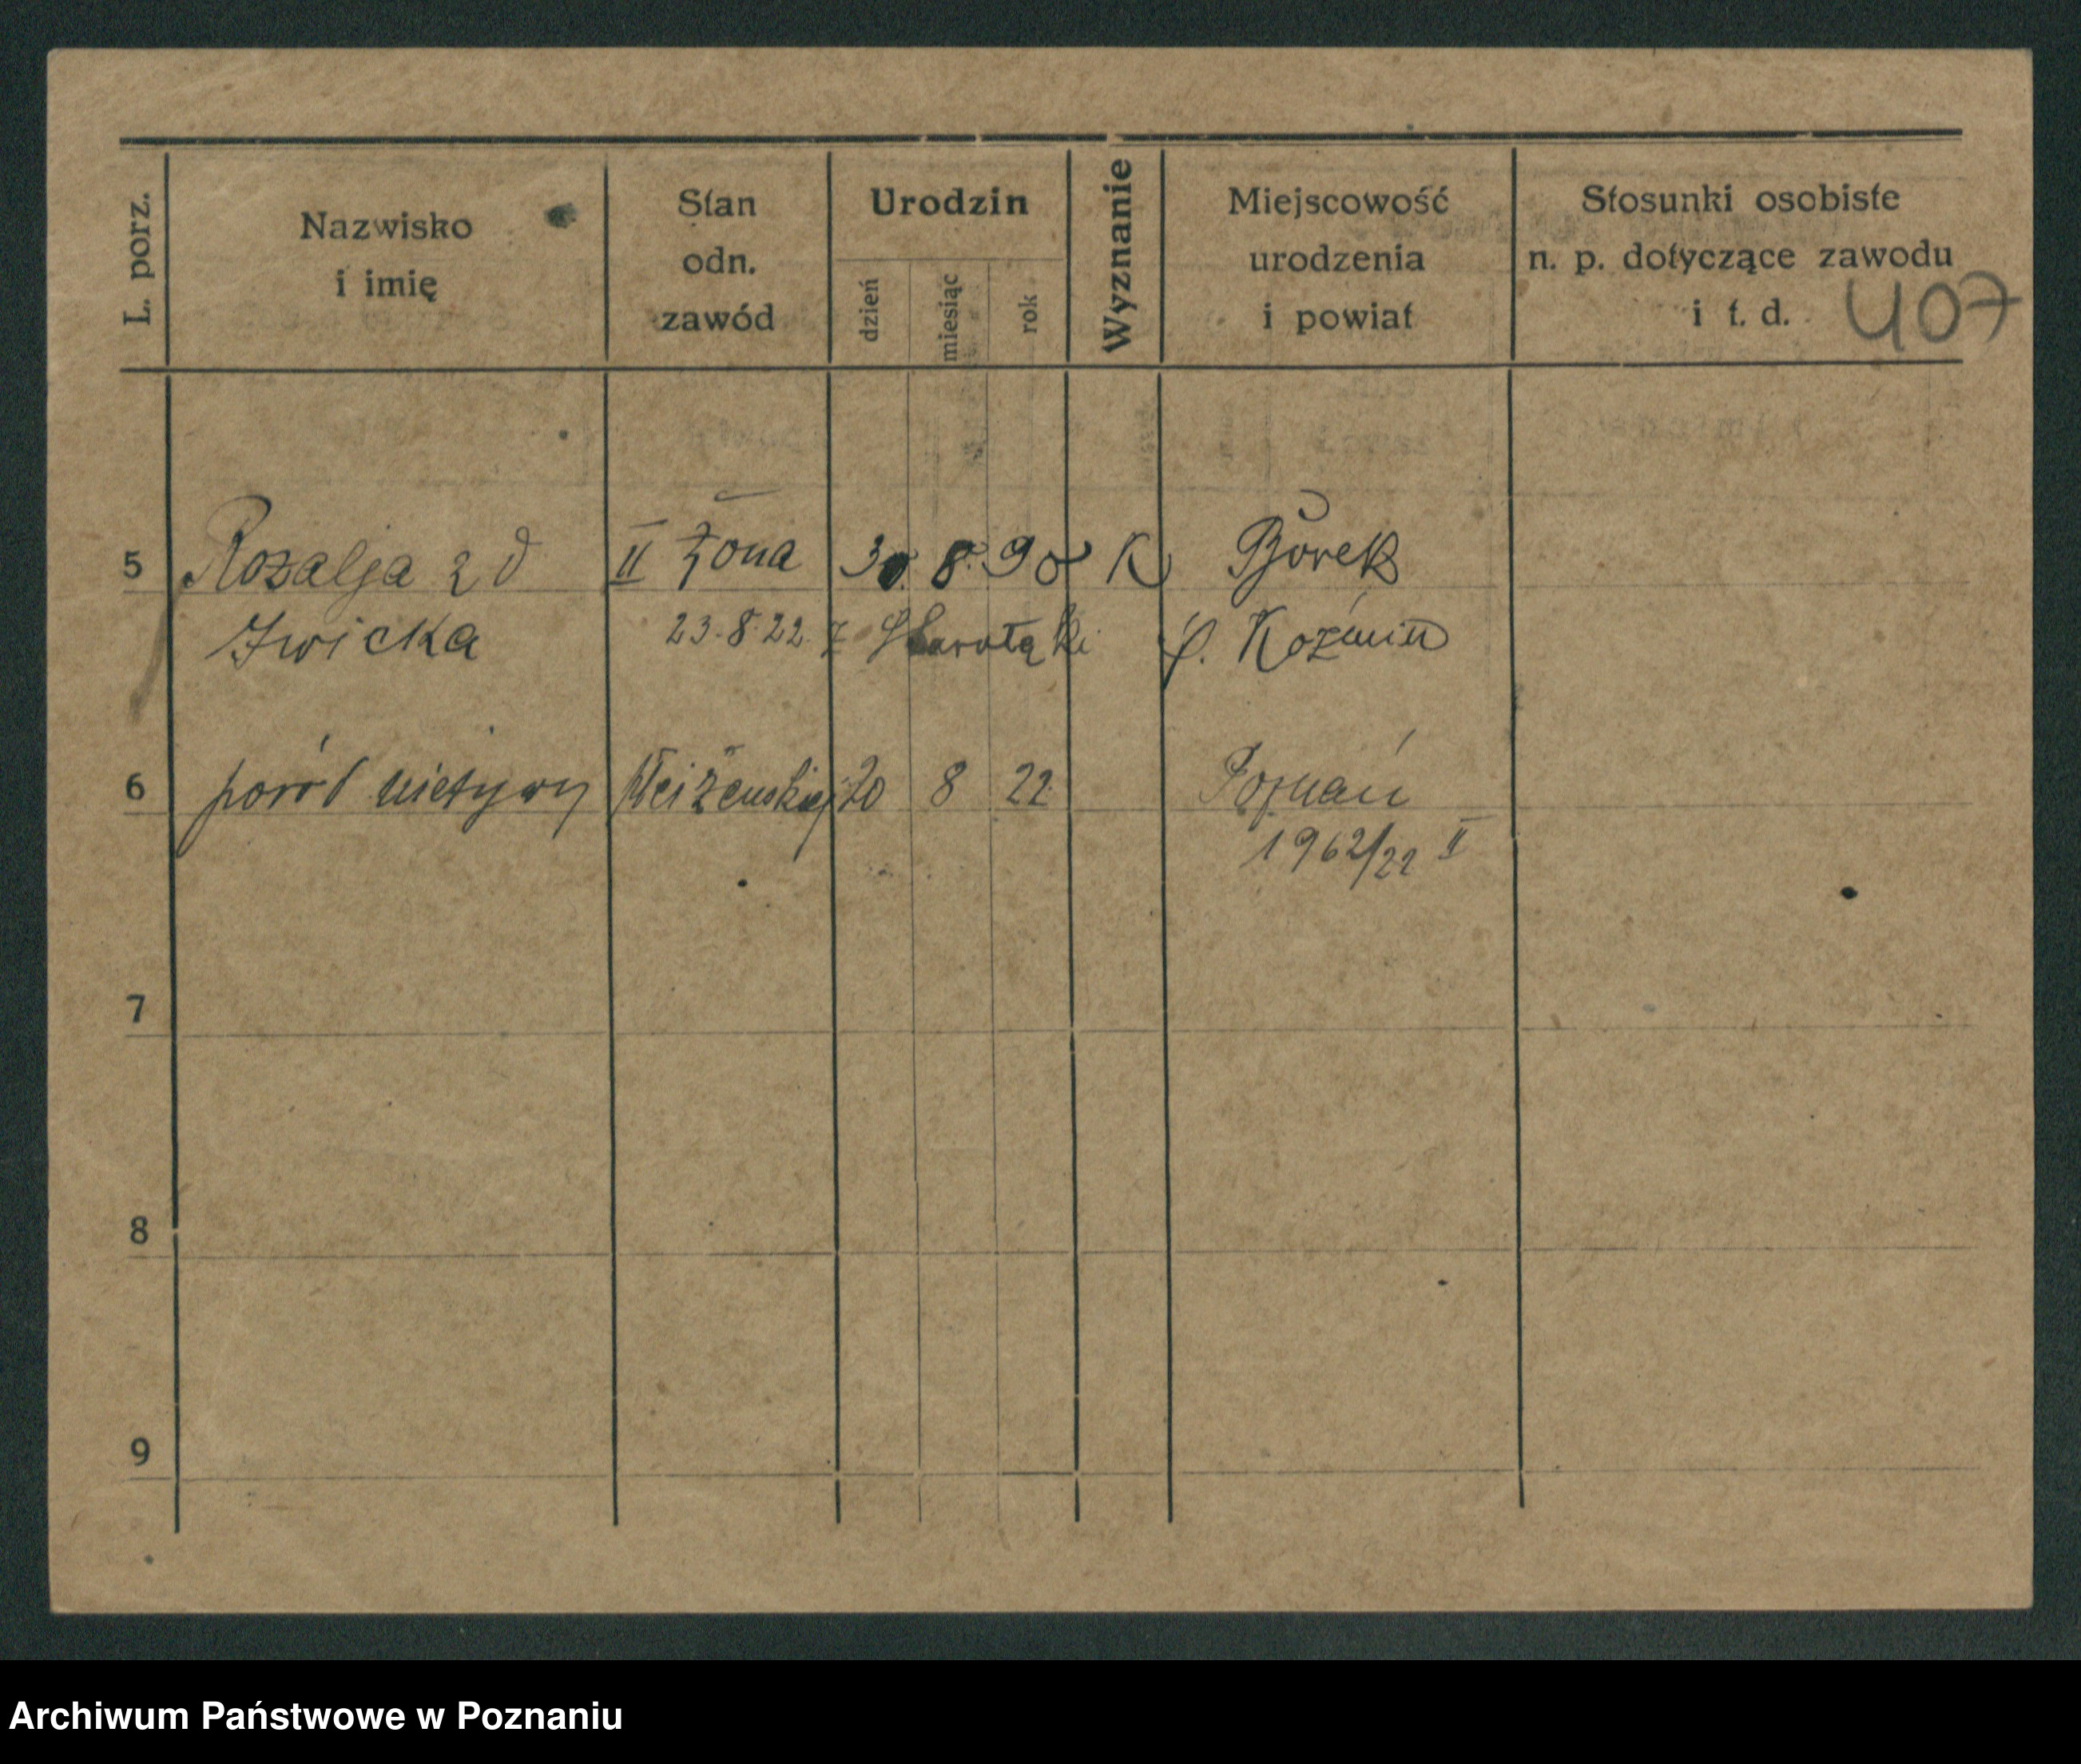 L. porz.
Nazwisko
i imię
Stan
odn.
zawód
Urodzin
dzień
miesiąc
rok
Wyznanie
Miejscowość
urodzenia
i powiat
Stosunki osobiste
n. p. dotyczące zawodu
i t. d.
407
5 Rozalja 2 d II żona 30. 8. 90 K Borek
23.8.22. p. Koźmin
6 poród nieżywy płci żeńskiej 20 8 22 Poznań
1962/22 II
7
8
9
Archiwum Państwowe w Poznaniu